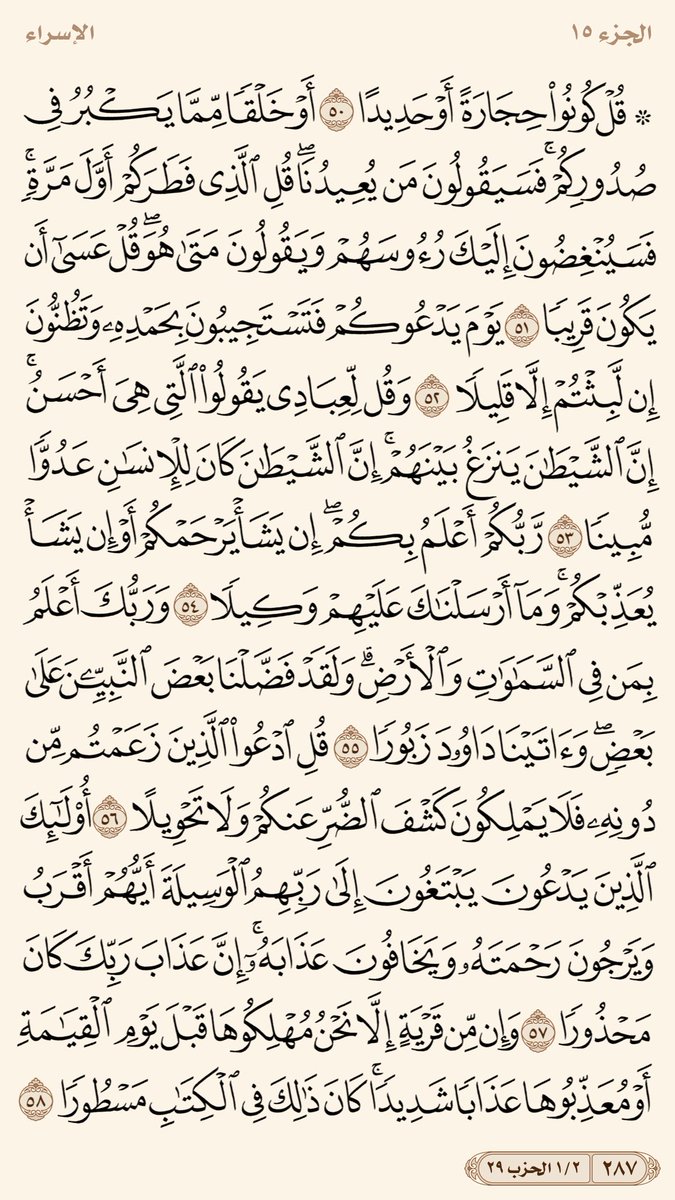 الجزء ١٥ الإسراء
۞ قُلۡ كُونُواْ حِجَارَةً أَوۡ حَدِيدًا ٥٠ أَوۡ خَلۡقٗا مِّمَّا يَكۡبُرُ فِي
صُدُورِكُمۡۚ فَسَيَقُولُونَ مَن يُعِيدُنَاۖ قُلِ ٱلَّذِي فَطَرَكُمۡ أَوَّلَ مَرَّةٖۚ
فَسَيُنۡغِضُونَ إِلَيۡكَ رُءُوسَهُمۡ وَيَقُولُونَ مَتَىٰ هُوَۖ قُلۡ عَسَىٰٓ أَن
يَكُونَ قَرِيبٗا ٥١ يَوۡمَ يَدۡعُوكُمۡ فَتَسۡتَجِيبُونَ بِحَمۡدِهِۦ وَتَظُنُّونَ
إِن لَّبِثۡتُمۡ إِلَّا قَلِيلٗا ٥٢ وَقُل لِّعِبَادِي يَقُولُواْ ٱلَّتِي هِيَ أَحۡسَنُۚ
إِنَّ ٱلشَّيۡطَٰنَ يَنزَغُ بَيۡنَهُمۡۚ إِنَّ ٱلشَّيۡطَٰنَ كَانَ لِلۡإِنسَٰنِ عَدُوّٗا
مُّبِينٗا ٥٣ رَّبُّكُمۡ أَعۡلَمُ بِكُمۡۖ إِن يَشَأۡ يَرۡحَمۡكُمۡ أَوۡ إِن يَشَأۡ
يُعَذِّبۡكُمۡۚ وَمَآ أَرۡسَلۡنَٰكَ عَلَيۡهِمۡ وَكِيلٗا ٥٤ وَرَبُّكَ أَعۡلَمُ
بِمَن فِي ٱلسَّمَٰوَٰتِ وَٱلۡأَرۡضِۗ وَلَقَدۡ فَضَّلۡنَا بَعۡضَ ٱلنَّبِيِّـۧنَ عَلَىٰ
بَعۡضٖۖ وَءَاتَيۡنَا دَاوُۥدَ زَبُورٗا ٥٥ قُلِ ٱدۡعُواْ ٱلَّذِينَ زَعَمۡتُم مِّن
دُونِهِۦ فَلَا يَمۡلِكُونَ كَشۡفَ ٱلضُّرِّ عَنكُمۡ وَلَا تَحۡوِيلًا ٥٦ أُوْلَٰٓئِكَ
ٱلَّذِينَ يَدۡعُونَ يَبۡتَغُونَ إِلَىٰ رَبِّهِمُ ٱلۡوَسِيلَةَ أَيُّهُمۡ أَقۡرَبُ
وَيَرۡجُونَ رَحۡمَتَهُۥ وَيَخَافُونَ عَذَابَهُۥٓۚ إِنَّ عَذَابَ رَبِّكَ كَانَ
مَحۡذُورٗا ٥٧ وَإِن مِّن قَرۡيَةٍ إِلَّا نَحۡنُ مُهۡلِكُوهَا قَبۡلَ يَوۡمِ ٱلۡقِيَٰمَةِ
أَوۡ مُعَذِّبُوهَا عَذَابٗا شَدِيدٗاۚ كَانَ ذَٰلِكَ فِي ٱلۡكِتَٰبِ مَسۡطُورٗا ٥٨
٢٨٧ ١/٢ الحزب ٢٩